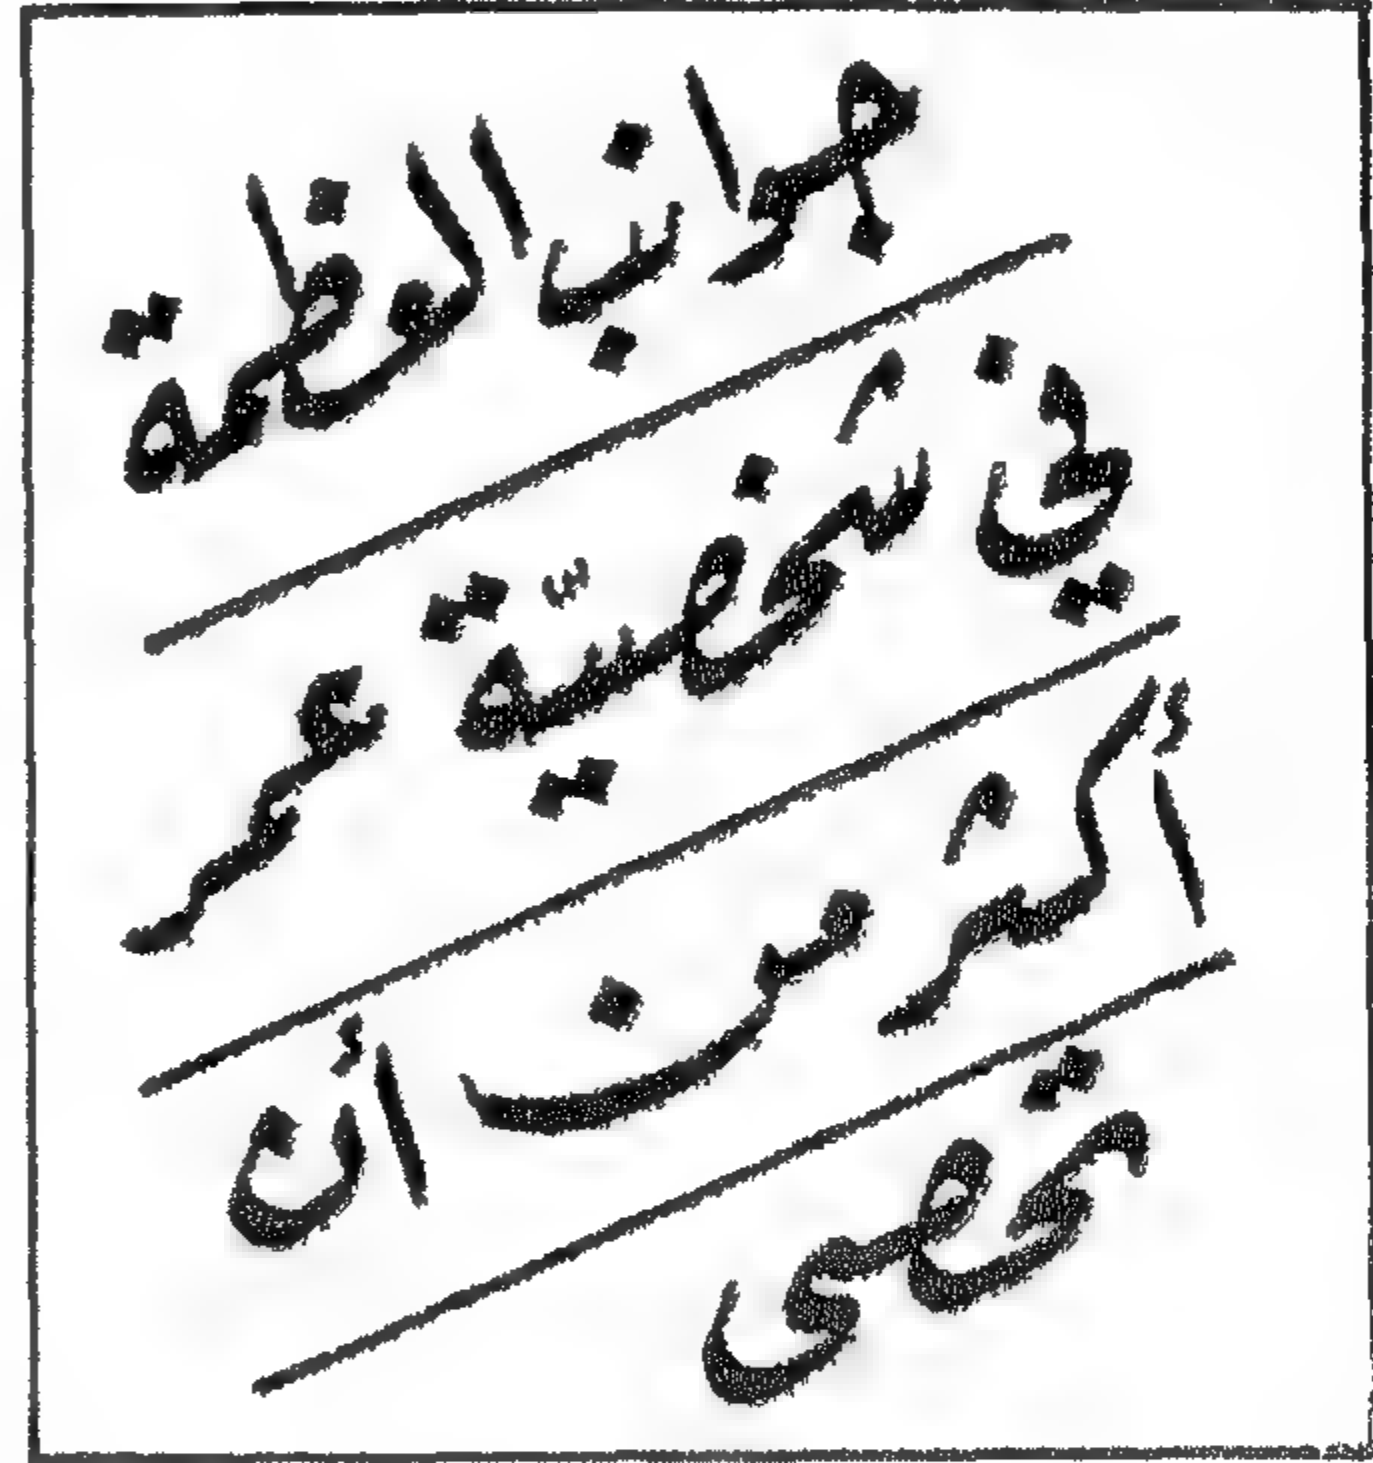 جوانب العظمة
في شخصيّة عمر
أكثر من أن
تحصى